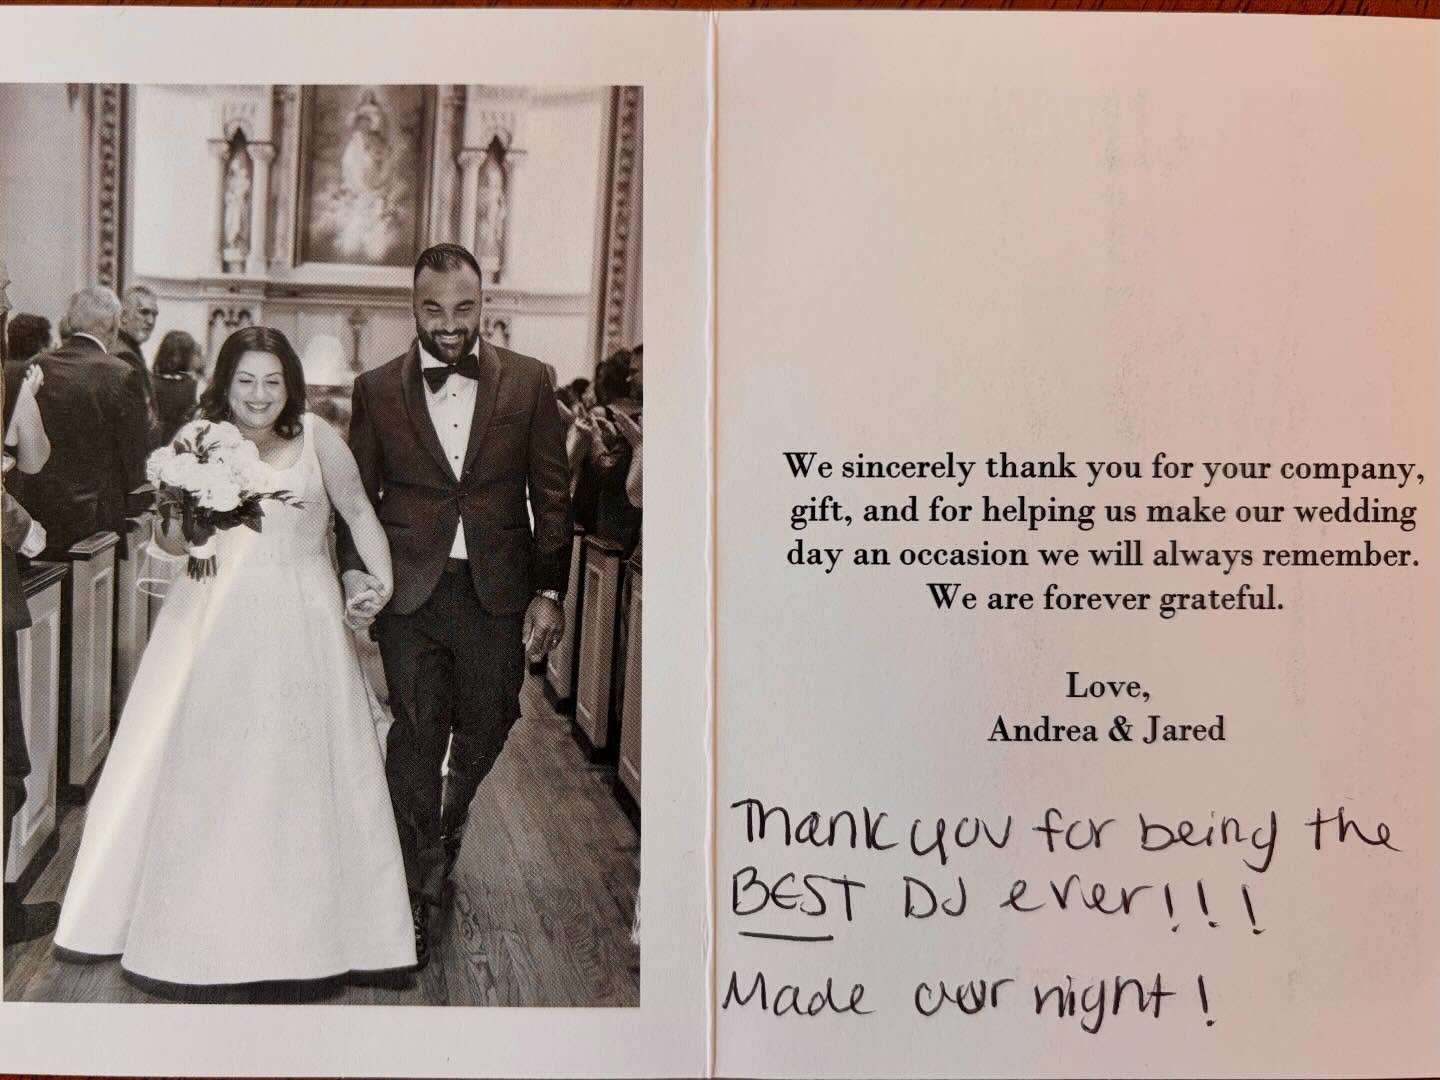 We sincerely thank you for your company,
gift, and for helping us make our wedding
day an occasion we will always remember.
We are forever grateful.
Love,
Andrea & Jared
Thank you for being the
BEST DJ ever!!!
Made our night!